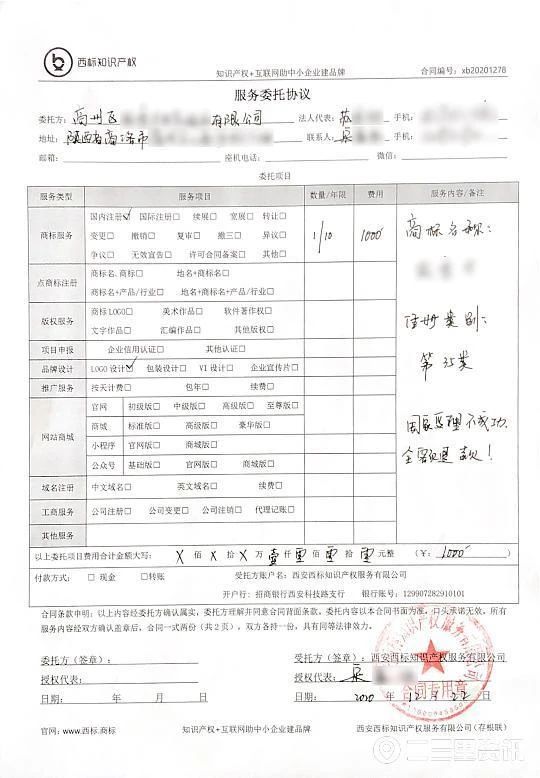 西标知识产权
知识产权+互联网助中小企业建品牌
合同编号：xb20201278
服务委托协议
委托方：商州区 有限公司 法人代表： 手机：
地址：陕西省商洛市 联系人： 手机：
邮箱： 座机电话： 微信：
委托项目
服务类型 服务项目 数量/年限 费用 服务内容/备注
商标服务 国内注册☑ 国际注册□ 续展□ 宽展□ 转让□
变更□ 撤销□ 复审□ 撤三□ 异议□
争议□ 无效宣告□ 许可合同备案□ 其他□
1/10 1000
商标名称：
注册类别：
第35类
国家受理不成功,
全额退款！
点商标注册 商标名.商标□ 地名+商标□
商标名+产品/行业□ 地名+商标名+产品/行业□
版权服务 商标LOGO□ 美术作品□ 软件著作权□
文字作品□ 汇编作品□ 其他版权□
项目申报 企业信用认证□ 其他认证□
品牌设计 LOGO设计☑ 包装设计□ VI设计□ 企业宣传片□
推广服务 按天计费□ 包年□ 续费□
网站商城 官网 初级版□ 中级版□ 高级版□ 至尊版□
商城 标准版□ 高级版□ 豪华版□
小程序 官网版□ 商城版□
公众号 基础版□ 官网版□ 商城版□
域名注册 中文域名□ 英文域名□ 续费□
工商服务 公司注册□ 公司变更□ 公司注销□ 代理记账□
其他服务
以上委托项目费用合计金额大写： X 佰 X 拾 X 万 壹 仟 零 佰 零 拾 零 元整 （￥：1000）
付款方式： □ 现金 □转账 受托方账户名：西安西标知识产权服务有限公司
开户行：招商银行西安科技路支行 银行账号：129907282910101
合同条款申明：以上内容经委托方确认属实，委托方理解并同意合同背面条款。委托内容以本合同书面为准，口头承诺无效，所有
服务内容经双方确认盖章后，合同一式两份（共2页），双方各持一份，具有同等法律效力。
委托方（签章）： 受托方（签章）：西安西标知识产权服务有限公司
授权代表： 授权代表：
日期： 年 月 日 日期：2020年12月22日
合同专用章
官网：www.西标.商标 知识产权+互联网助中小企业建品牌 西安西标知识产权服务有限公司（存根联）
二三里资讯